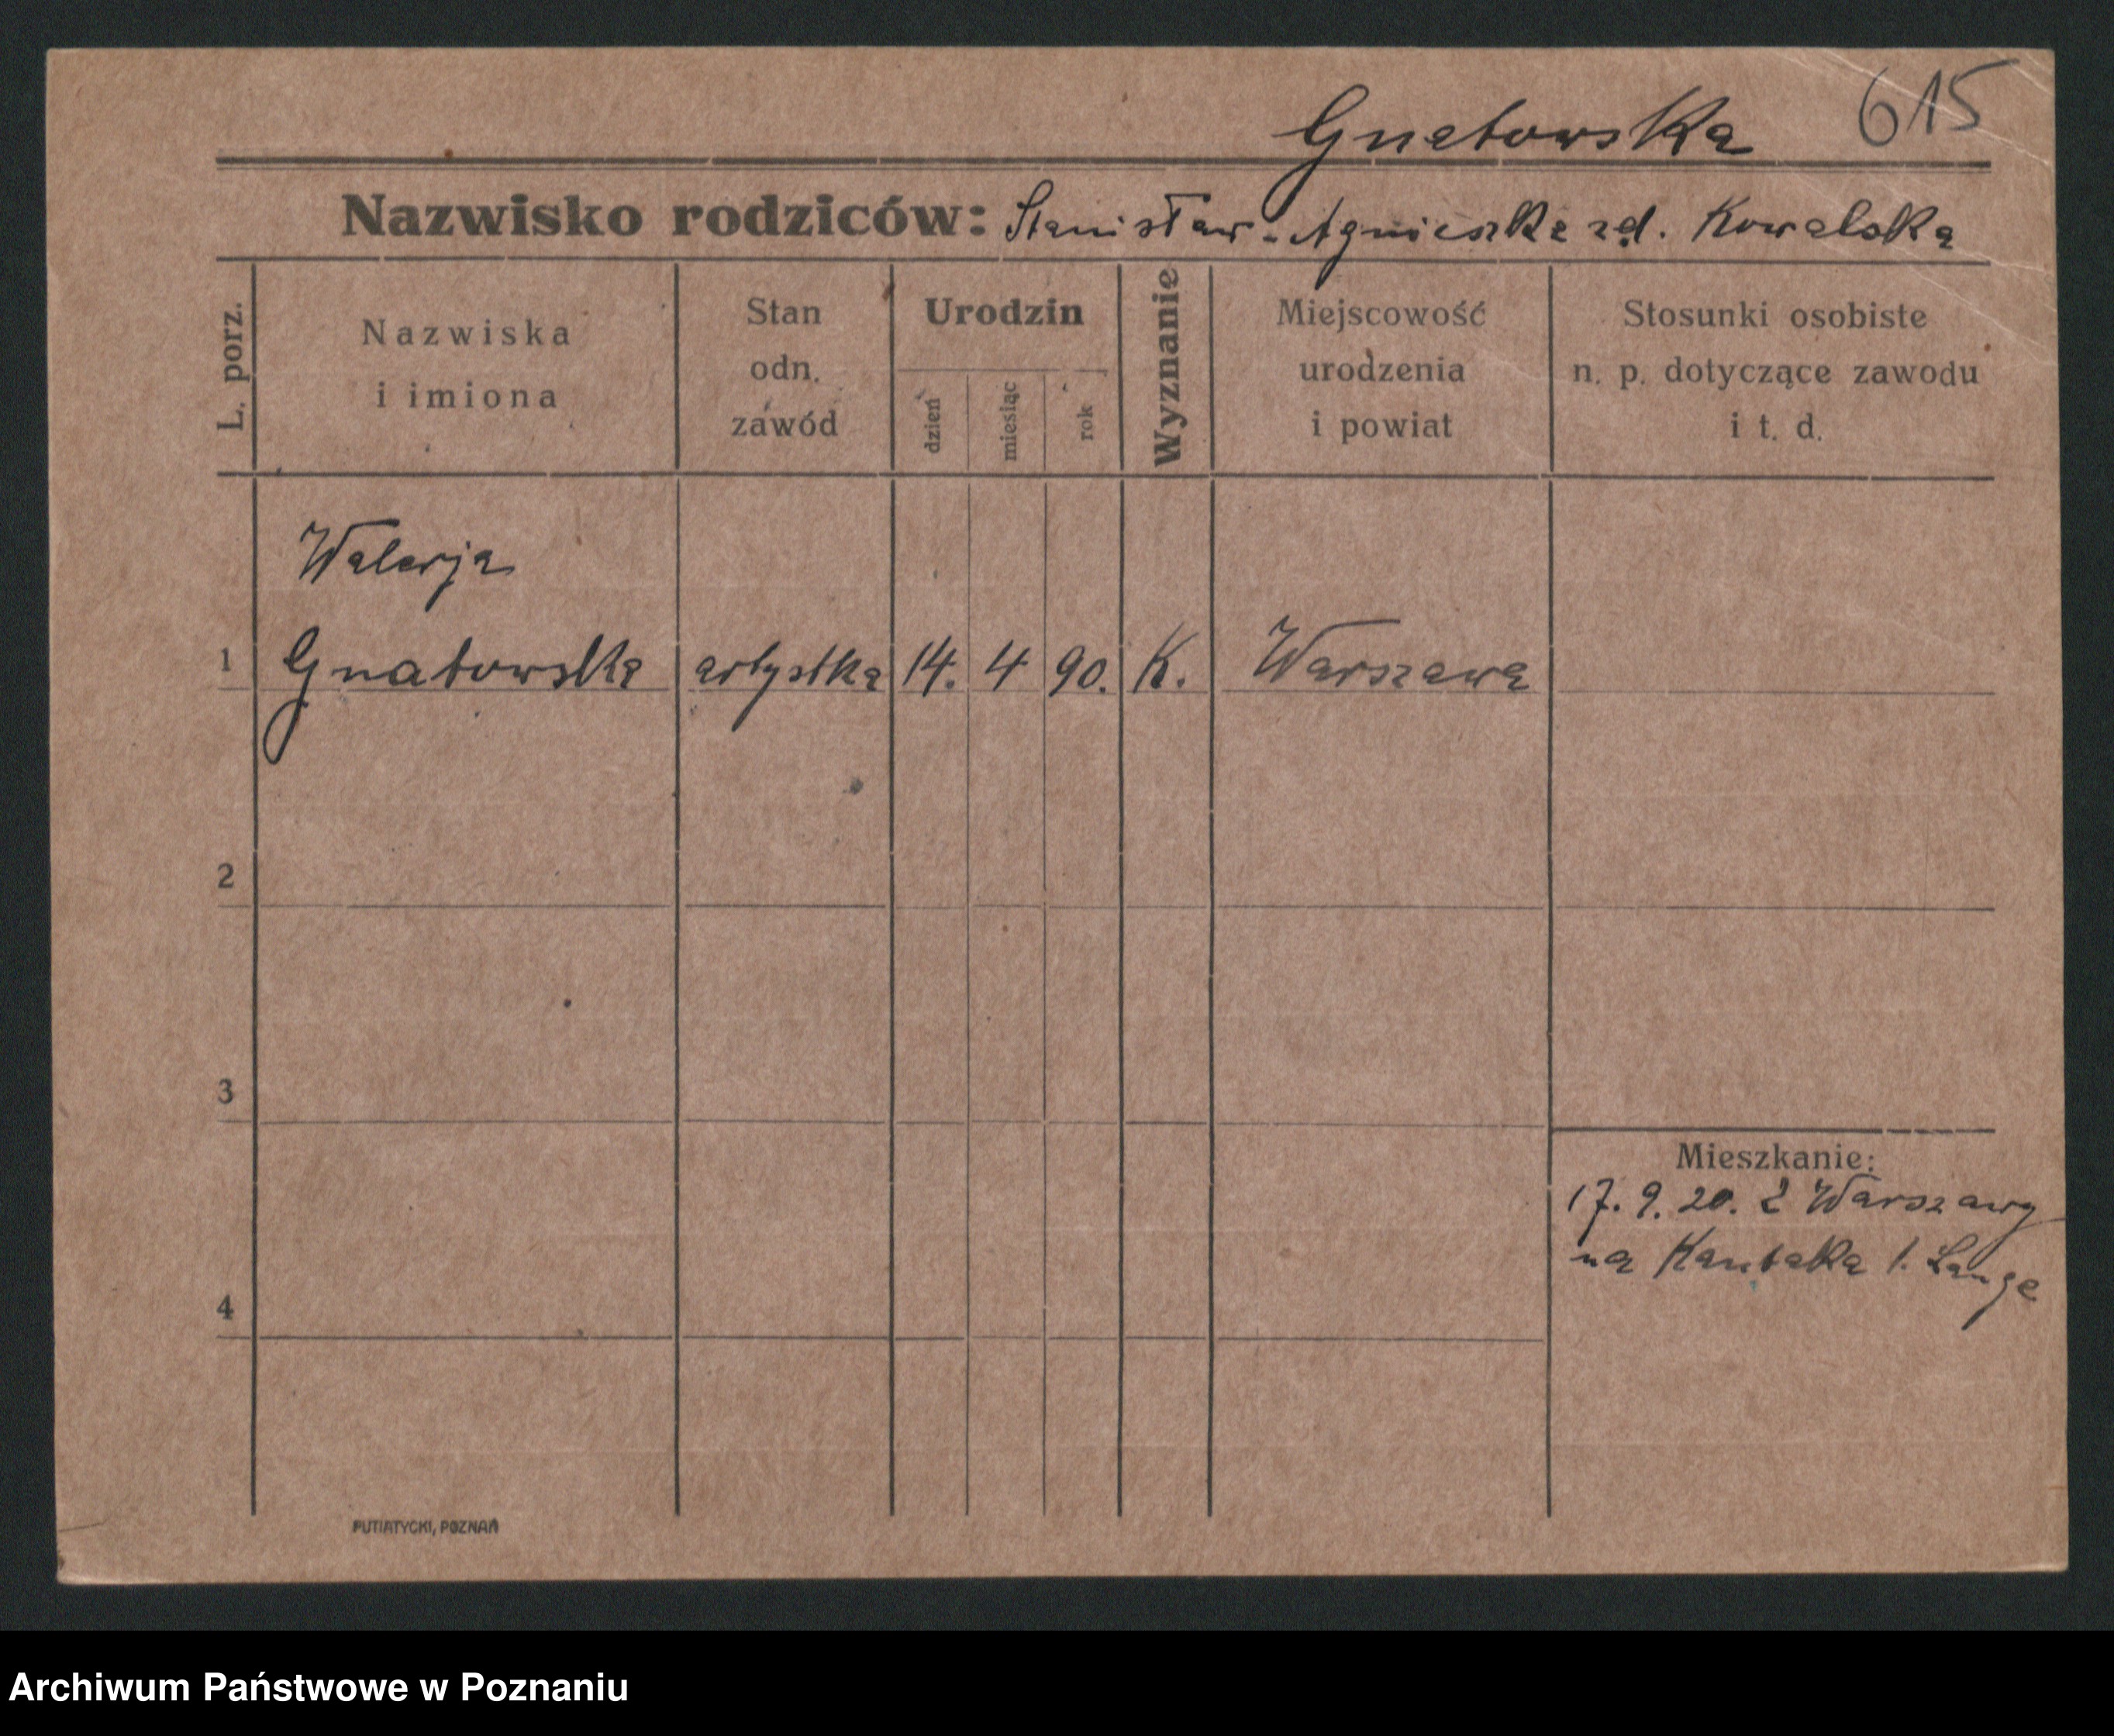 Gnatowska 615
Nazwisko rodziców: Stanisław - Agnieszka zd. Kowalska
L. porz.
Nazwiska
i imiona
Stan
odn.
zawód
Urodzin
dzień
miesiąc
rok
Wyznanie
Miejscowość
urodzenia
i powiat
Stosunki osobiste
n. p. dotyczące zawodu
i t. d.
Walerja
1 Gnatowska artystka 14. 4 90. K. Warszawa
2
3
Mieszkanie:
17. 9. 20. Z Warszawy
na Kantaka 1. Lange
4
PUTIATYCKI, POZNAŃ
Archiwum Państwowe w Poznaniu